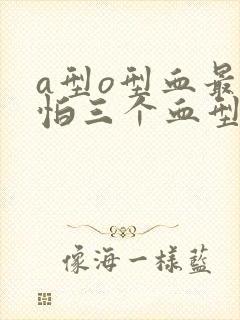 a型o型血最
怕三个血型
像海一樣藍